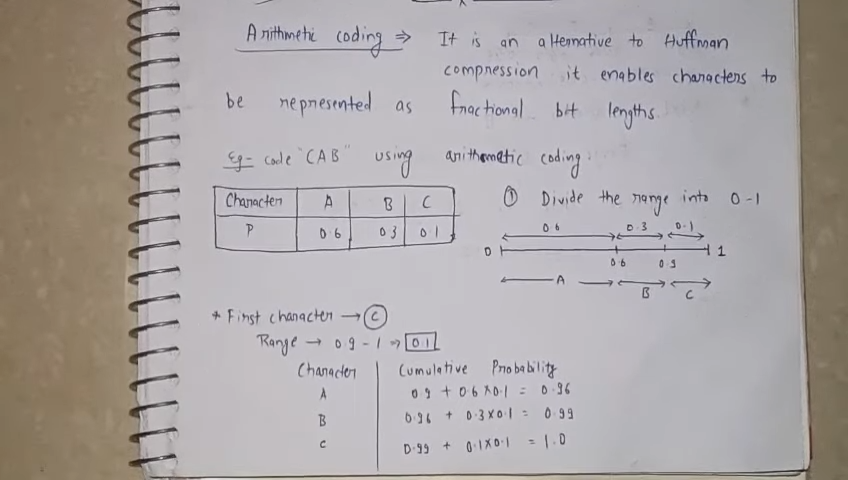 Arithmetic coding ⇒ It is an alternative to Huffman
compression it enables characters to
be represented as fractional bit lengths.
Eg- code "CAB" using arithmetic coding:
Character A B C
P 0.6 0.3 0.1
① Divide the range into 0-1
0.6 0.3 0.1
0 1
0.6 0.9
A B C
* First character → C
Range → 0.9 - 1 ⇒ 0.1
Character Cumulative Probability
A 0.9 + 0.6 × 0.1 = 0.96
B 0.96 + 0.3 × 0.1 = 0.99
C 0.99 + 0.1 × 0.1 = 1.0